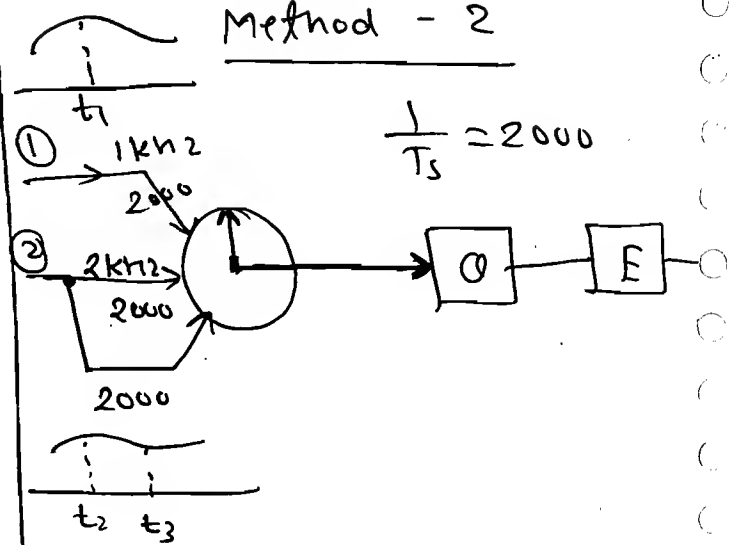 Method - 2
t1
1/Ts = 2000
① 1kHz
2000
② 2kHz
2000
2000
Q
E
t2 t3